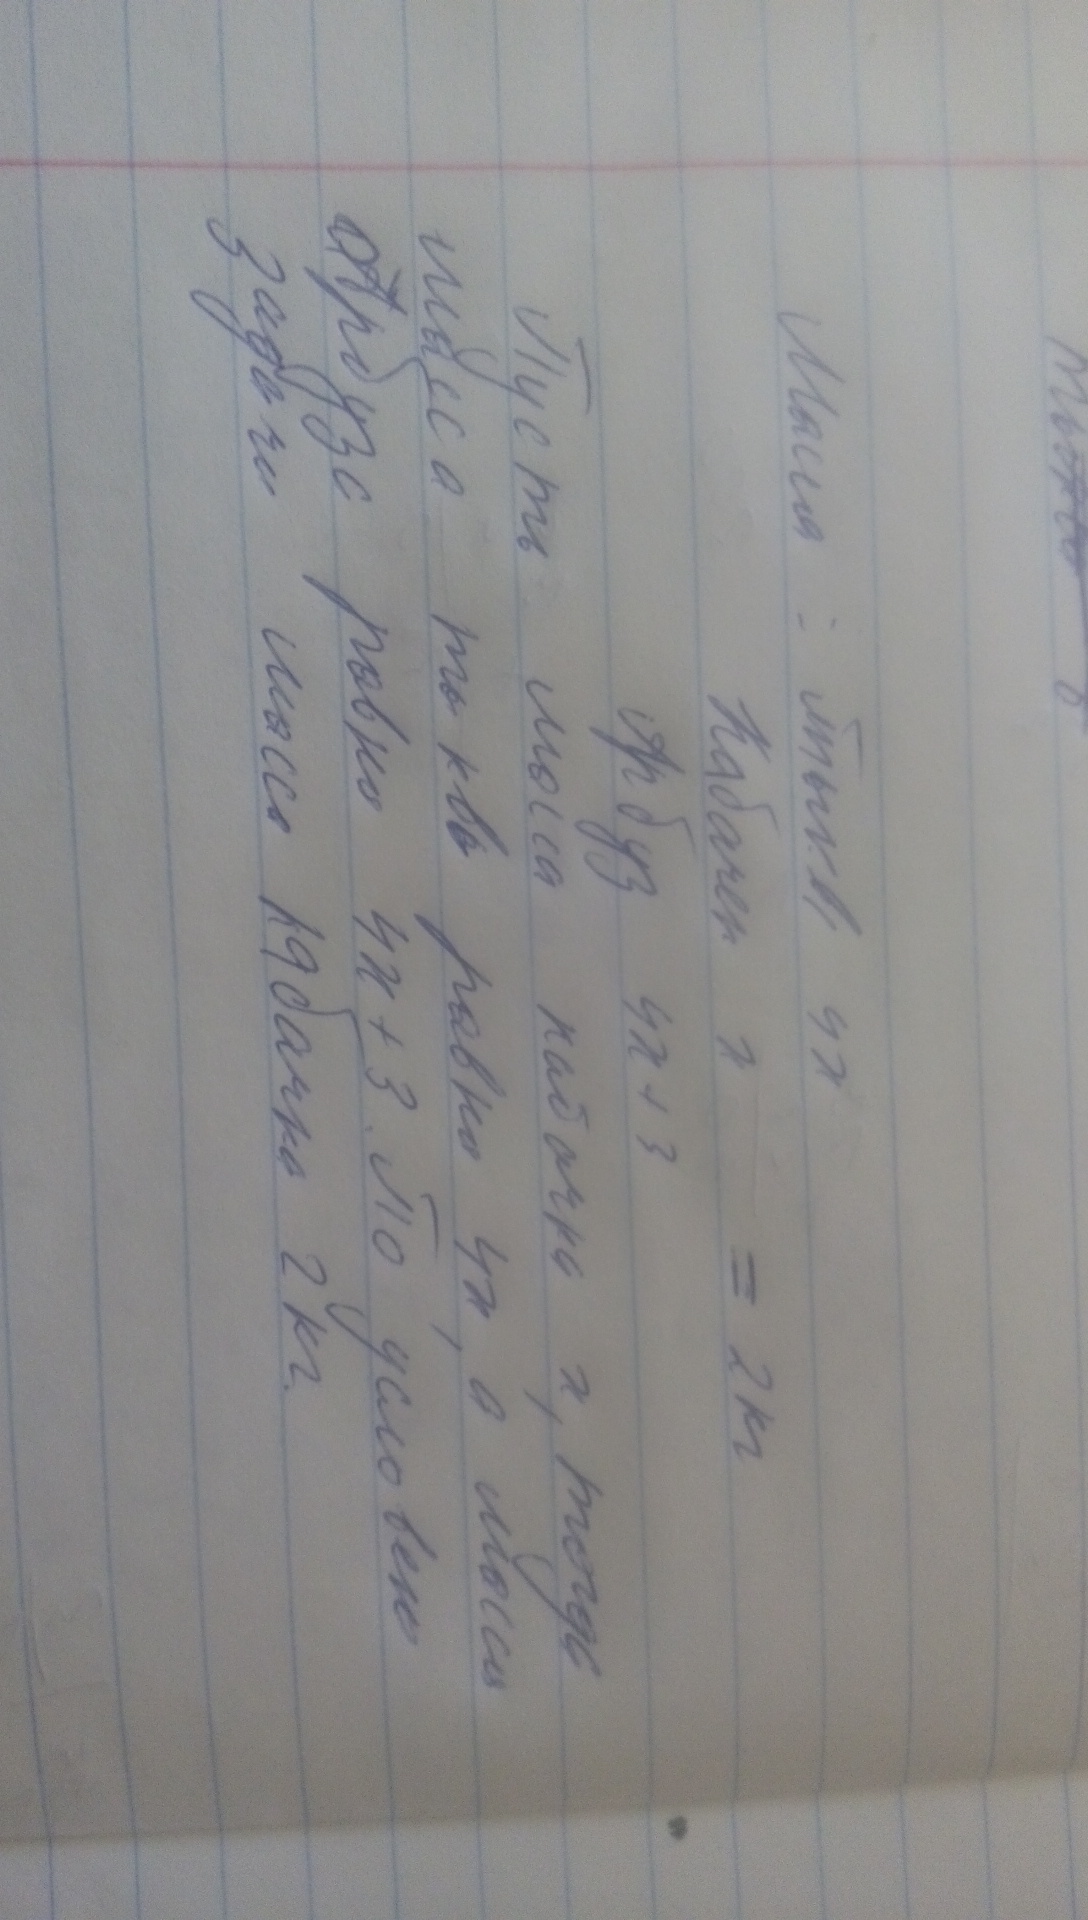 Масса : тыкв 4х
Кабачек х = 2кг
Арбуз 4х+3
Пусть масса кабачка х, тогда
масса тыквы равна 4х, а масса
арбуза равна 4х+3. По условию
задачи масса кабачка 2кг.